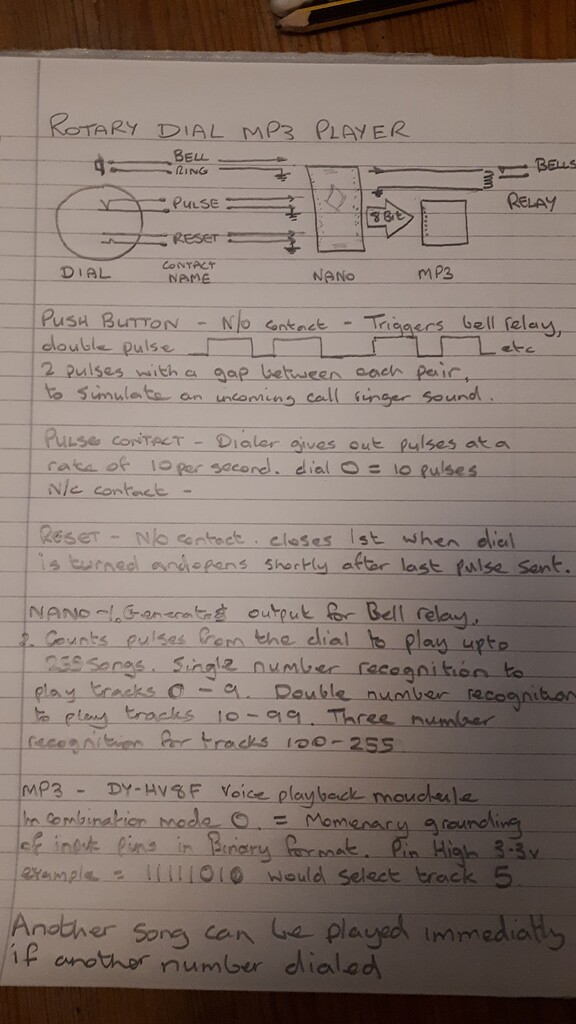 ROTARY DIAL MP3 PLAYER
BELL
RING
BELLS
PULSE
8 Bit
RELAY
RESET
DIAL
CONTACT
NAME
NANO
MP3
PUSH BUTTON - N/o contact - Triggers bell relay,
double pulse etc
2 pulses with a gap between each pair,
to simulate an incoming call ringer sound.
PULSE CONTACT - Dialer gives out pulses at a
rate of 10 per second. dial 0 = 10 pulses
N/c contact -
RESET - N/o contact. closes 1st when dial
is turned and opens shortly after last pulse sent.
NANO - 1. Generates output for Bell relay.
2. Counts pulses from the dial to play upto
255 songs. Single number recognition to
play tracks 0 - 9. Double number recognition
to play tracks 10 - 99. Three number
recognition for tracks 100 - 255
MP3 - DY-HV8F Voice playback moudule
In combination mode 0. = Momenary grounding
of input pins in Binary format. Pin High 3.3v
example = 11111010 would select track 5.
Another song can be played immediatly
if another number dialed